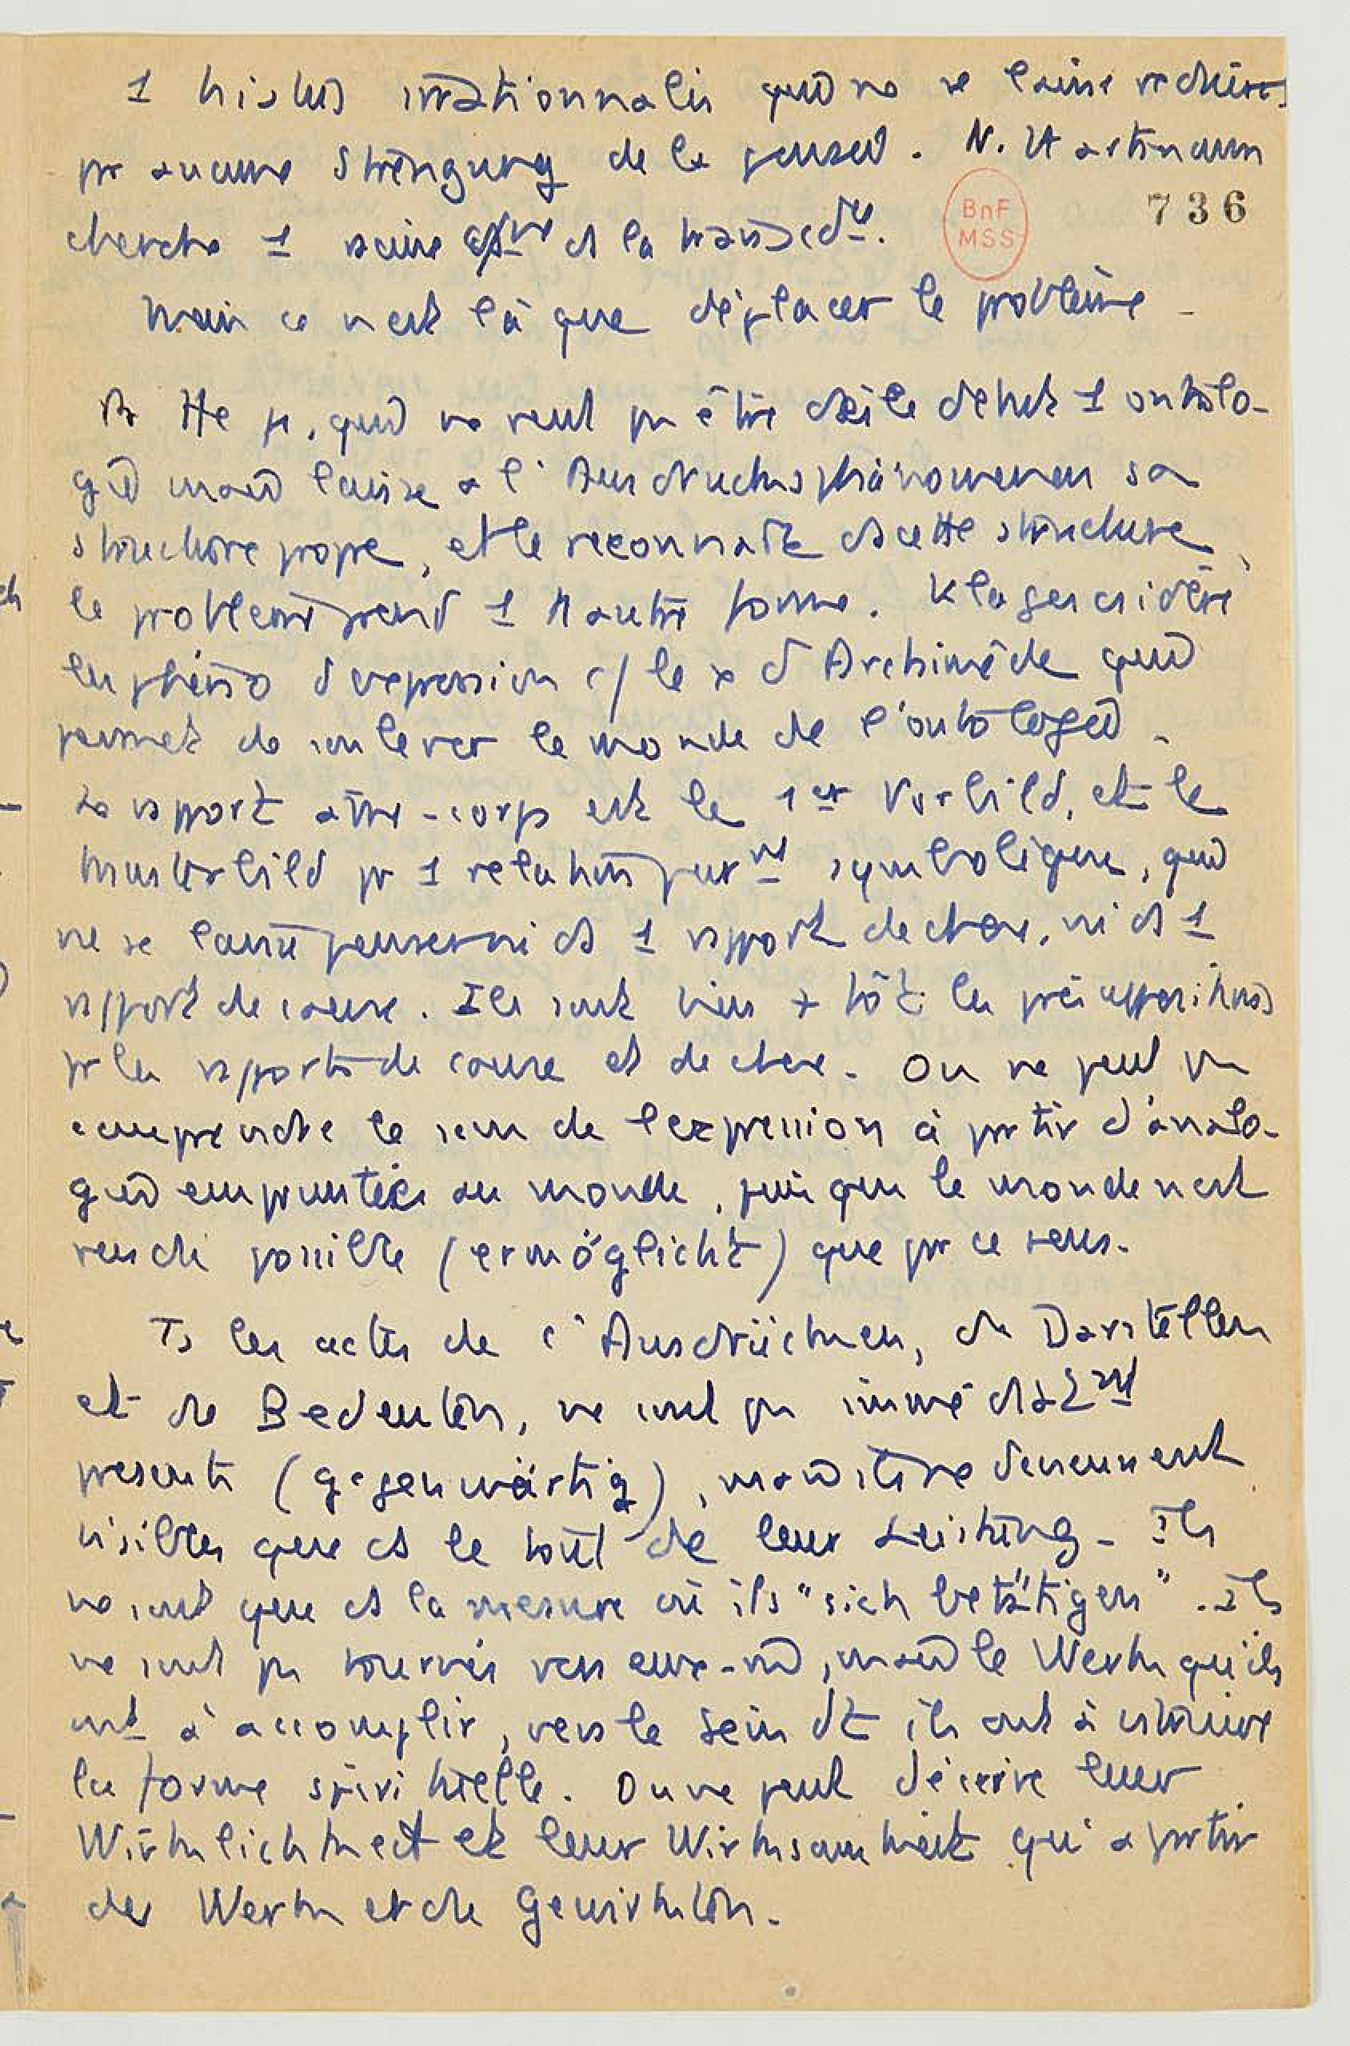 1 hiatus irrationnalis qui ne se laisse réduire
pr aucune Strengung de la pensée. N. Hartmann
cherche 1 et la
Mais ce n'est là que déplacer le problème -
736
BnF
MSS
qui ne veut pas être 1 ontolo-
gie mais laisse à l'Ausdrucksphänomenen sa
structure propre, et le reconnaît ds cette structure,
le problème prend 1 autre forme. Klages considère
les phéno d'expression c/ le d'Archimède qui
permet de soulever le monde de l'ontologie.
Le rapport âme-corps est le 1er Vorbild, et le
Musterbild pr 1 relation purmt symbolique, qui
ne se laisse penser ni ds 1 rapport de chose, ni ds 1
rapport de cause. Ils sont bien + tôt les présuppositions
pr les rapports de cause et de chose. On ne peut pas
comprendre le sens de l'expression à partir d'analo-
gies empruntées au monde, puisque le monde n'est
rendu possible (ermöglicht) que par ce sens.
Ts les actes de l'Ausdrücken, du Darstellen
et du Bedeuten, ne sont pas immédiatmt
présents (gegenwärtig), mais ne deviennent
visibles que ds le tout de leur Leistung - Ils
ne sont que ds la mesure où ils "sich betätigen". Ils
ne sont pas tournés vers eux-m, mais le Werk qu'ils
ont à accomplir, vers le Sein dt ils ont à construire
la forme spirituelle. On ne peut décrire leur
Wirklichkeit et leur Wirksamkeit qu'à partir
des Werk et de